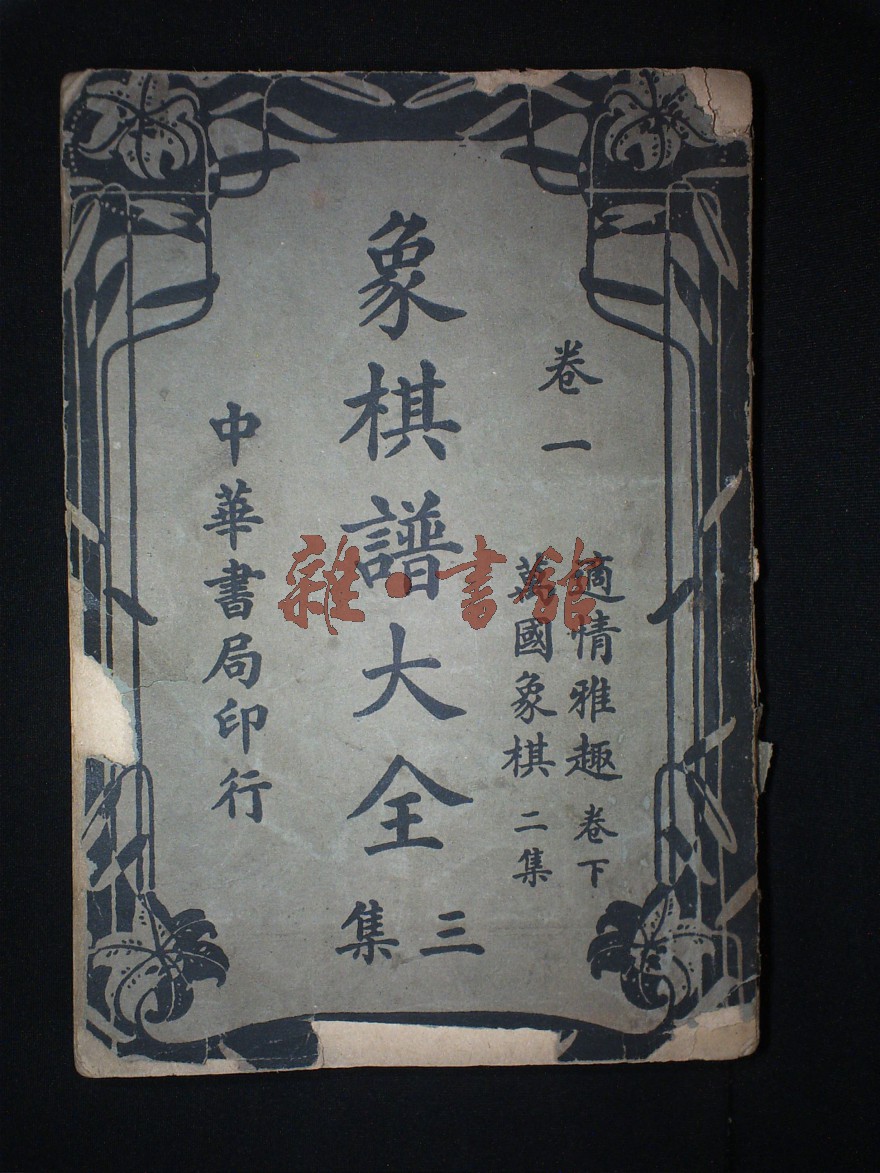 卷一
適情雅趣 卷下
萬國象棋 二集
象棋譜大全
三集
中華書局印行
雜·書館